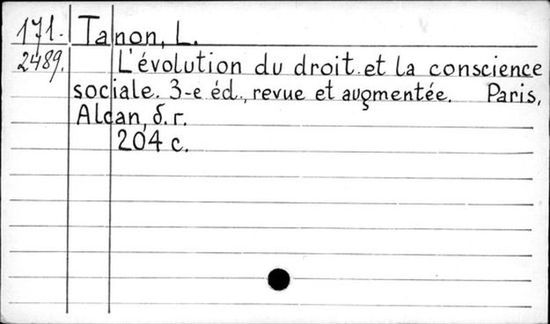 171. Tanon, L.
2489. L'évolution du droit et la conscience
sociale. 3-e éd., revue et augmentée. Paris,
Alcan, б. г.
204 c.